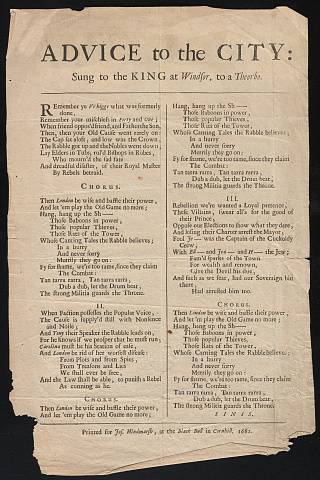 ADVICE to the CITY:
Sung to the KING at Windsor, to a Theorbo.
Remember ye Whiggs what was formerly
done,
Remember your mischiefs in Forty and One;
When friend oppos'd friend, and Father the Son,
Then, then your Old Cause went rarely on:
The Cap sat aloft, and low was the Crown,
The Rabble got up and the Nobles went down;
Lay Elders in Tubs, rul'd Bishops in Robes,
Who mourn'd the sad fate
And dreadful disaster, of their Royal Master
By Rebels betraid.
CHORUS.
Then London be wise and baffle their power,
And let 'em play the Old Game no more;
Hang, hang up the Sh——
Those Baboons in power,
Those popular Thieves,
Those Rats of the Tower,
Whose Canting Tales the Rabble believes;
In a hurry
And never sorry
Merrily they go on:
Fy for shame, we're too tame, since they claim
The Combat:
Tan tarra rara, Tan tarra rara,
Dub a dub, let the Drum beat;
The strong Militia guards the Throne.
II.
When Faction possesses the Popular Voice,
The Cause is supply'd still with Nonsence
and Noise;
And Tony their Speaker the Rabble leads on,
For he knows if we prosper that he must run;
Carolina must be his station of ease,
And London be rid of her worst disease:
From Plots and from Spies,
From Treasons and Lies
We shall ever be free,
And the Law shall be able, to punish a Rebel
As cunning as he.
CHORUS.
Then London be wise and baffle their power,
And let 'em play the Old Game no more;
Hang, hang up the Sh——
Those Baboons in power,
Those popular Thieves,
Those Rats of the Tower,
Whose Canting Tales the Rabble believes;
In a hurry
And never sorry
Merrily they go on:
Fy for shame, we're too tame, since they claim
The Combat:
Tan tarra rara, Tan tarra rara,
Dub a dub, let the Drum beat;
The strong Militia guards the Throne.
III.
Rebellion we're wanted a Loyal pretence,
These Villains swear all's for the good of
their Prince;
Oppose our Elections to show what they dare,
And losing their Charter arrest the Mayor
Fool was the Captain of the Cuckoldy
Crew;
With and and the Jew;
Fam'd sparks of the Town
For wealth and renown,
Give the Devil his due,
And such as we fear, had our Sovereign bin
there,
Had arrested him too.
CHORUS.
Then London be wise and baffle their power,
And let 'em play the Old Game no more;
Hang, hang up the Sh——
Those Baboons in power,
Those popular Thieves,
Those Rats of the Tower,
Whose Canting Tales the Rabble believes;
In a hurry
And never sorry
Merrily they go on:
Fy for shame, we're too tame, since they claim
The Combat:
Tan tarra rara, Tan tarra rara,
Dub a dub, let the Drum beat,
The strong Militia guards the Throne.
FINIS.
Printed for Jos. Hindmarsh, at the Black Bull in Cornhill, 1682.